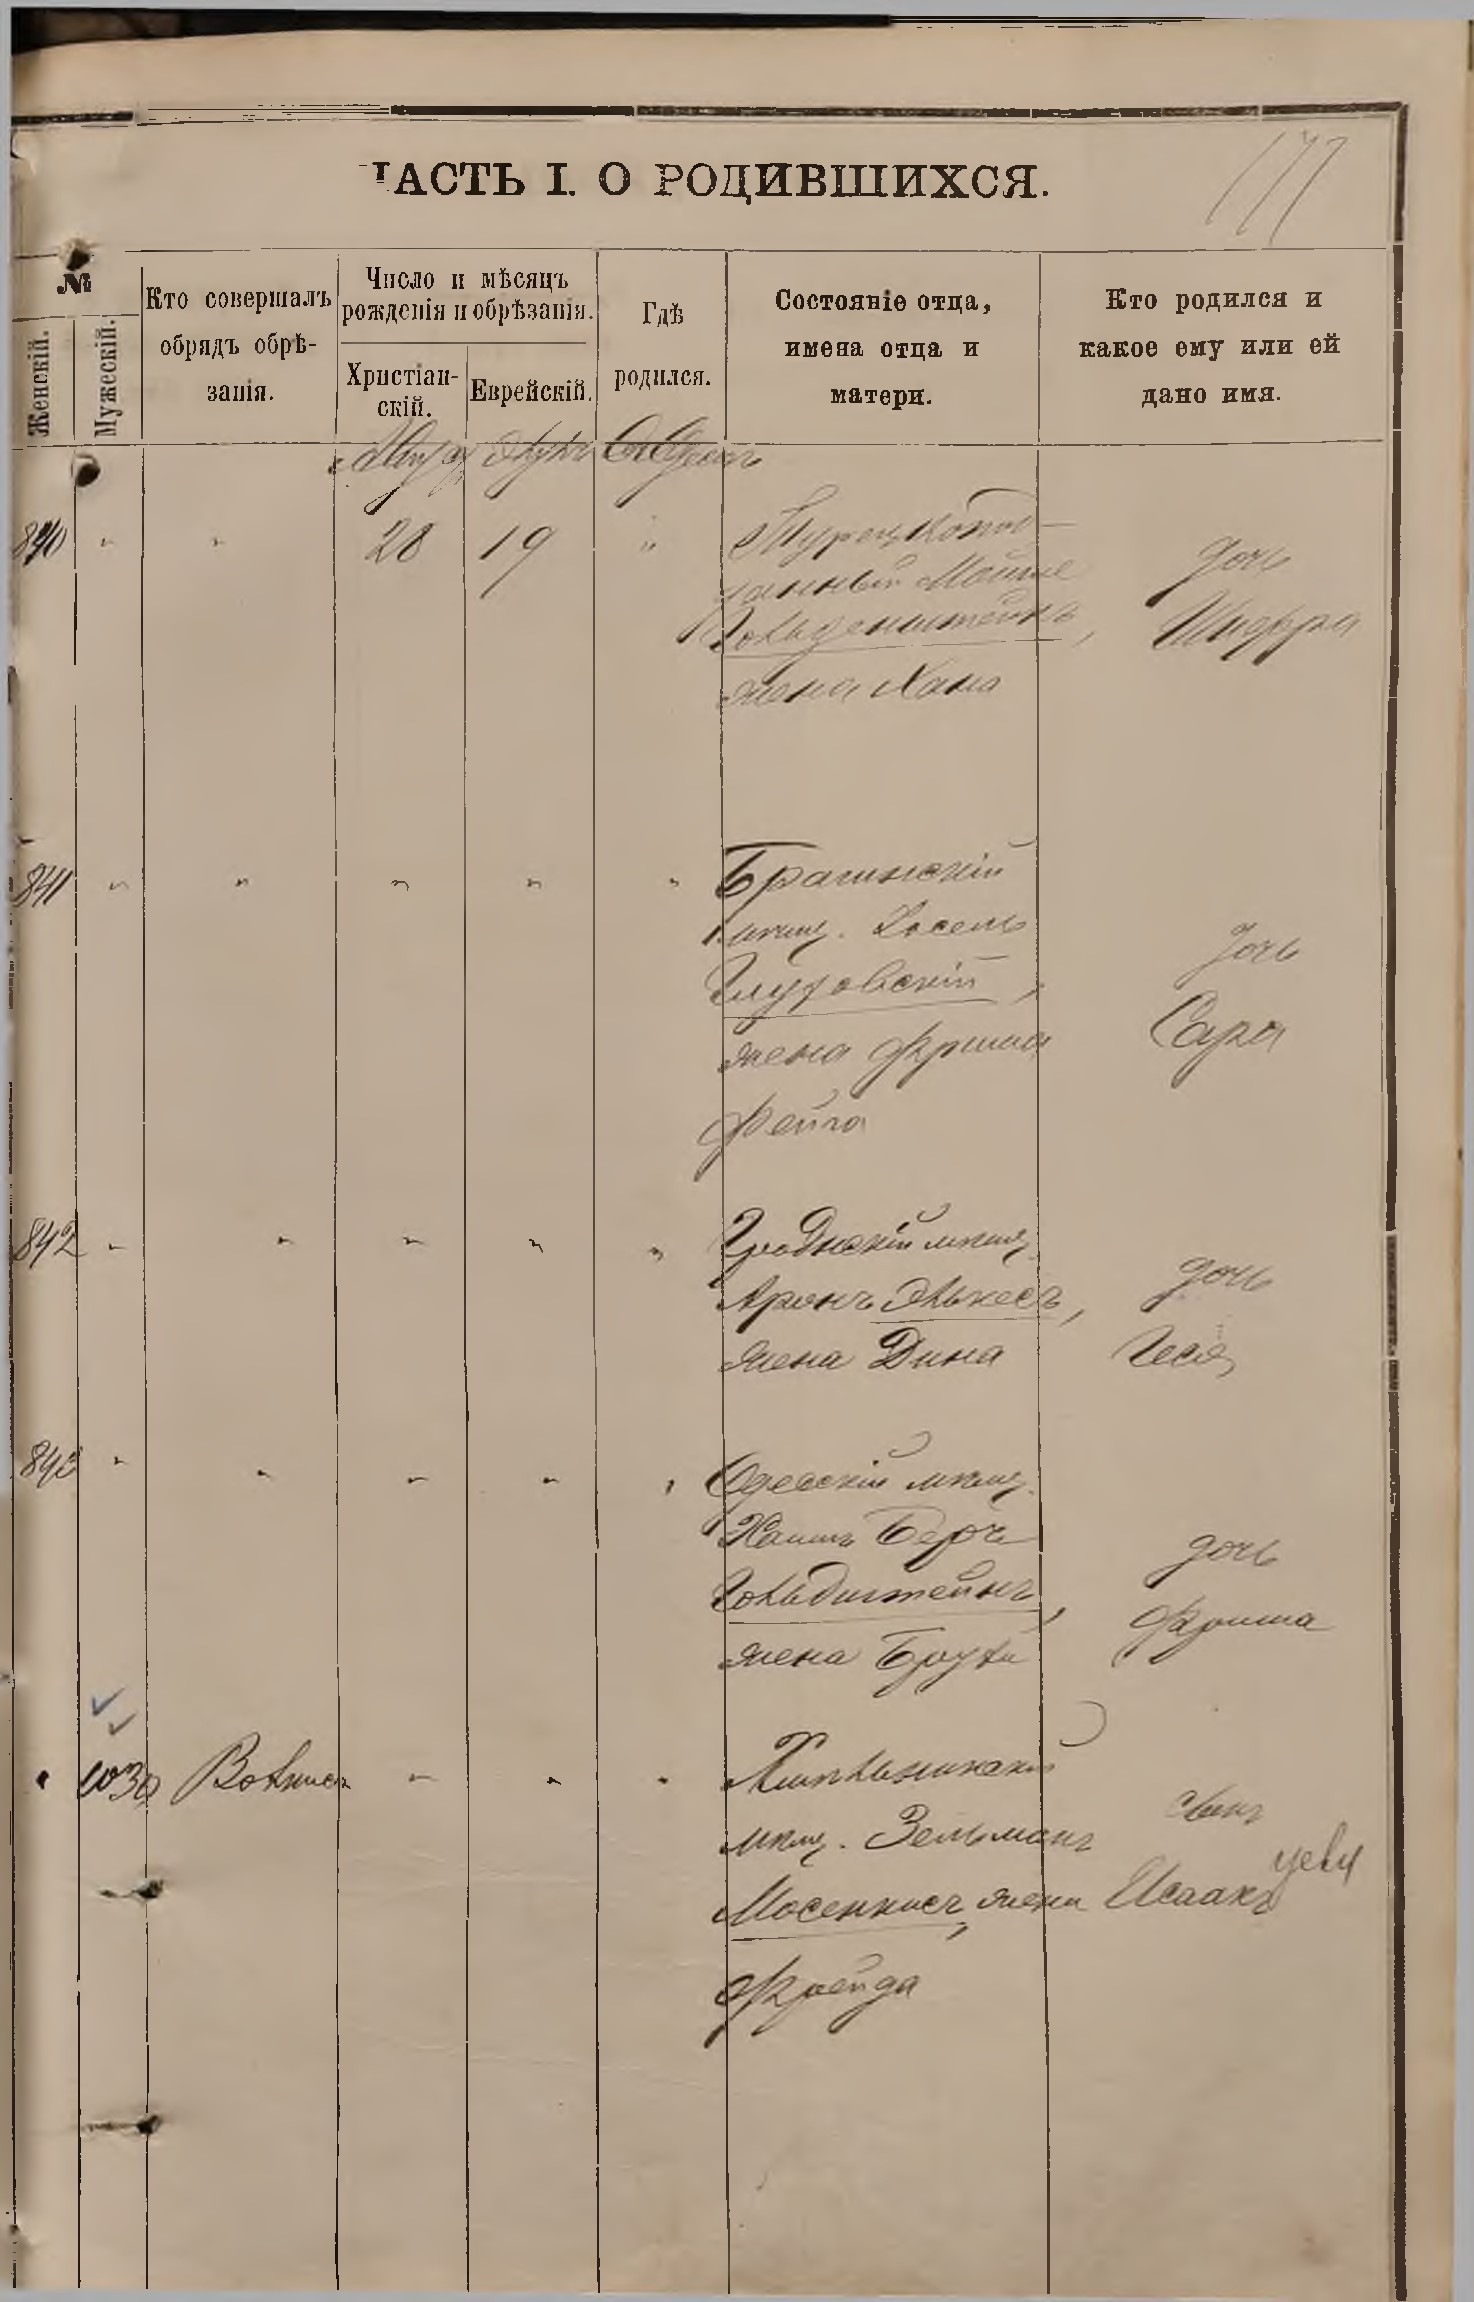 ЧАСТЬ I. О РОДИВШИХСЯ.
177
№
Женскій.
Мужескій.
Кто совершалъ
обрядъ обрѣ-
занія.
Число и мѣсяцъ
рожденія и обрѣзанія.
Христіан-
скій.
Еврейскій.
Гдѣ
родился.
Состояніе отца,
имена отца и
матери.
Кто родился и
какое ему или ей
дано имя.
840 " " 28 19 "
Турецкопод-
данный Мошке
Гольденштейнъ,
жена Хана
дочь
Шифра
841 " " " " "
Брагинскій
мѣщ. Іосель
Глуховскій,
жена Фрима
Фейга
дочь
Сара
842 " " " " "
Гродненскій мѣщ.
Аронъ Элькесъ,
жена Дина
дочь
Геся
843 " " " " "
Одесскій мѣщ.
Хаимъ Беръ
Гольдштейнъ,
жена Бруха
дочь
Фрима
" 1030 " " "
мѣщ. Зельманъ
Мосенкисъ, жена
Фрейда
сынъ
Исаакъ